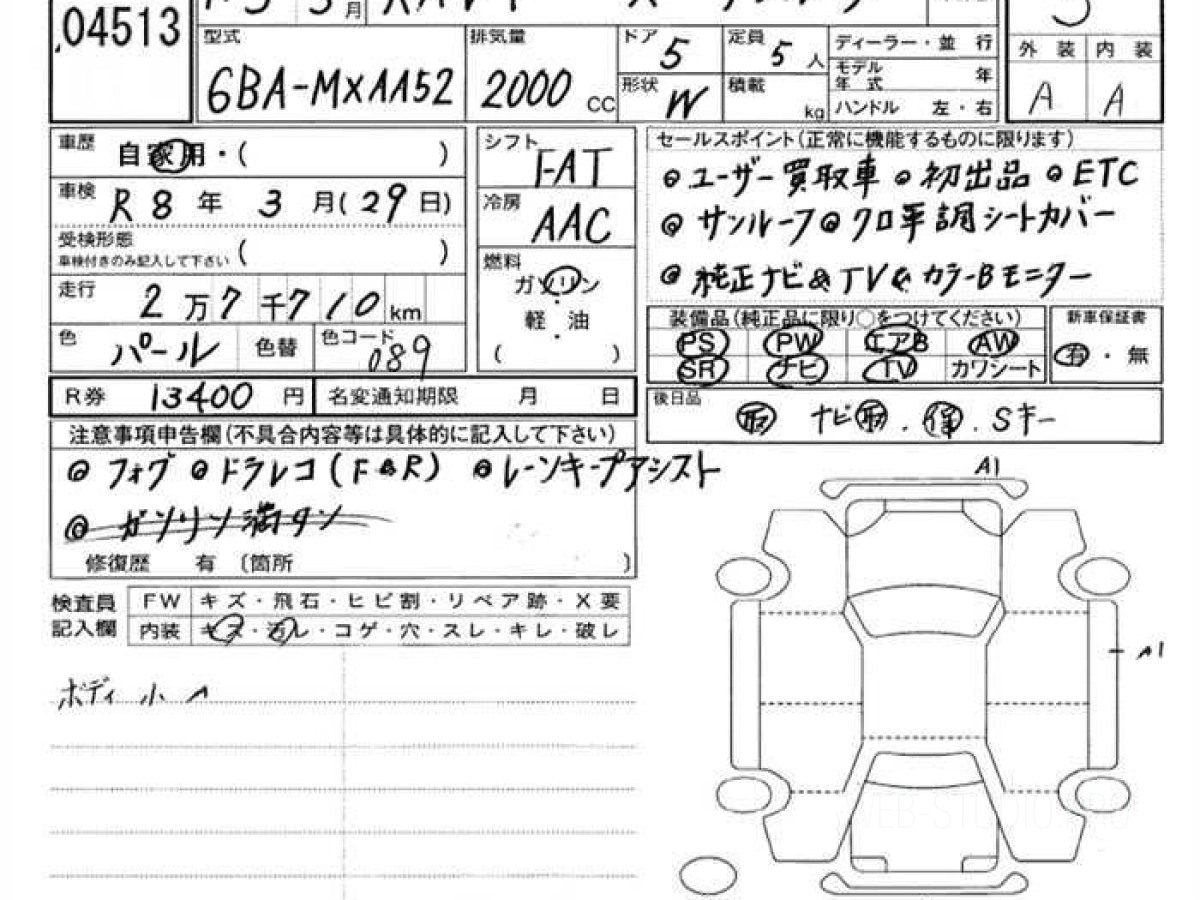 04513
月
型式
6BA-MXAA52
排気量
2000 CC
ドア 5
定員 5 人
ディーラー・並 行
形状 W
積載 kg
モデル
年 式 年
ハンドル 左・右
外 装 内 装
A A
車歴
自家用・( )
車検 R 8 年 3 月(29日)
受検形態
車検付きのみ記入して下さい ( )
走行 2 万 7 千 7 1 0 km
色 パール 色替 色コード 089
シフト FAT
冷房 AAC
燃料
ガソリン
・
軽・油
( )
セールスポイント(正常に機能するものに限ります)
◎ユーザー買取車 ◎初出品 ◎ETC
◎サンルーフ◎クロ革調シートカバー
◎純正ナビ&TV&カラーBモニター
装備品(純正品に限り○をつけてください)
PS PW エアB AW
SR ナビ TV カワシート
新車保証書
有・無
R券 13400 円 名変通知期限 月 日
後日品
取 ナビ取.保.Sキー
注意事項申告欄(不具合内容等は具体的に記入して下さい)
◎フォグ ◎ドラレコ(F&R) ◎レーンキープアシスト
◎ガソリン満タン
修復歴 有 〔箇所 〕
検査員
記入欄
FW キズ・飛石・ヒビ割・リペア跡・X要
内装 キズ・汚レ・コゲ・穴・スレ・キレ・破レ
ボディ小A
A1
A1
WEB-STUDIO.PRO